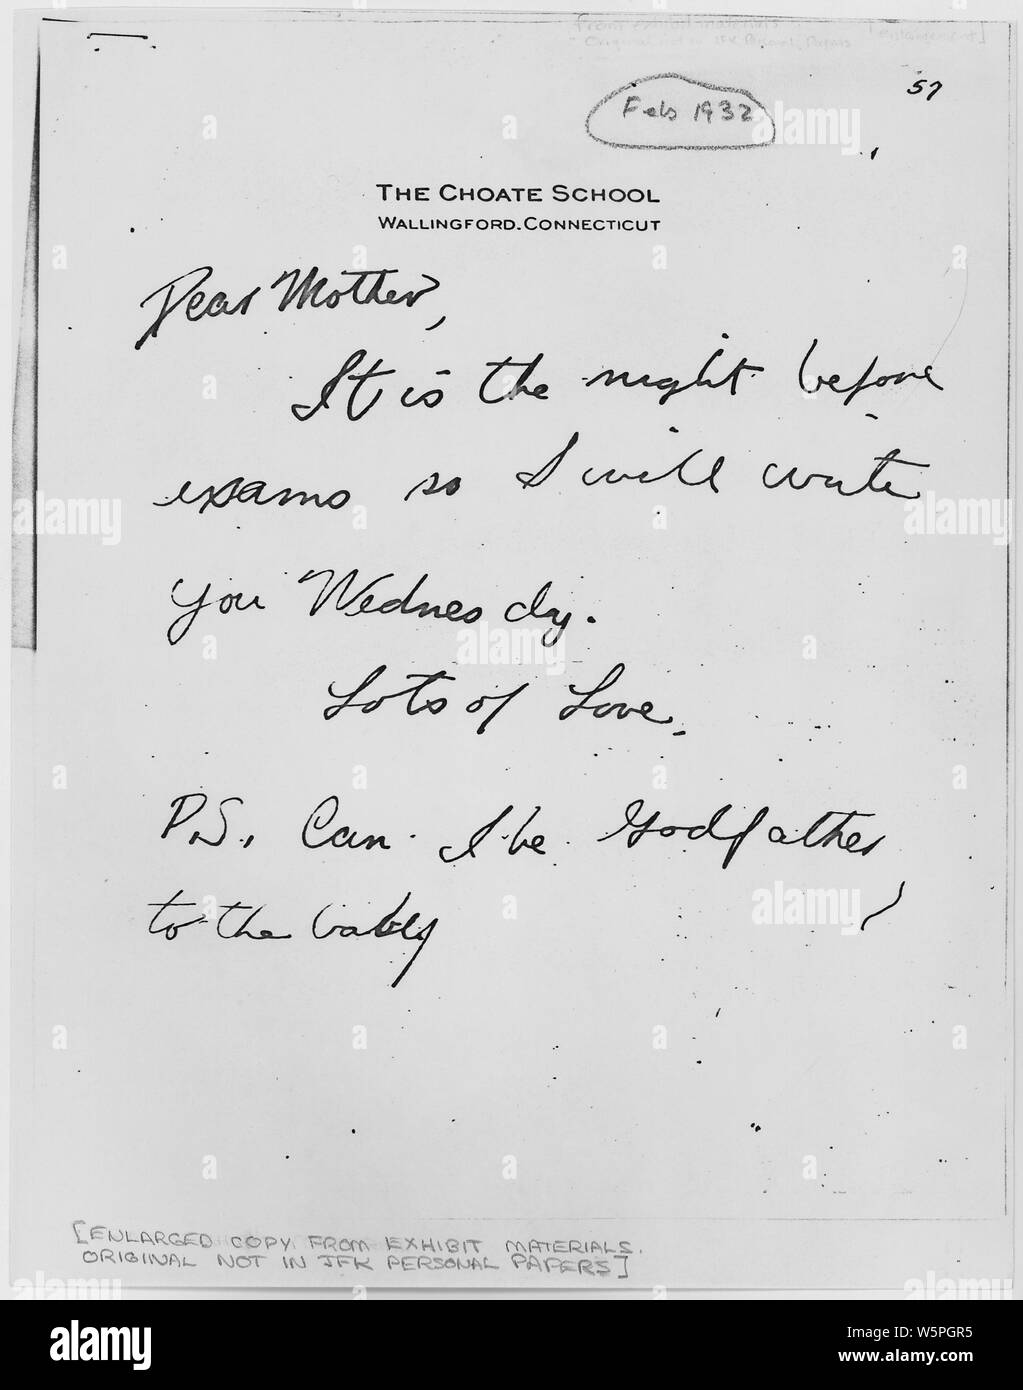 from exhibit materials [enlargement]
Original not in JFK Personal Papers
57
Feb 1932
THE CHOATE SCHOOL
WALLINGFORD.CONNECTICUT
Dear Mother,
It is the night before
exams so I will write
you Wednesday.
Lots of Love.
P.S. Can I be Godfather
to the baby
[ENLARGED COPY FROM EXHIBIT MATERIALS.
ORIGINAL NOT IN JFK PERSONAL PAPERS]
alamy
Image ID: W5PGR5
www.alamy.com